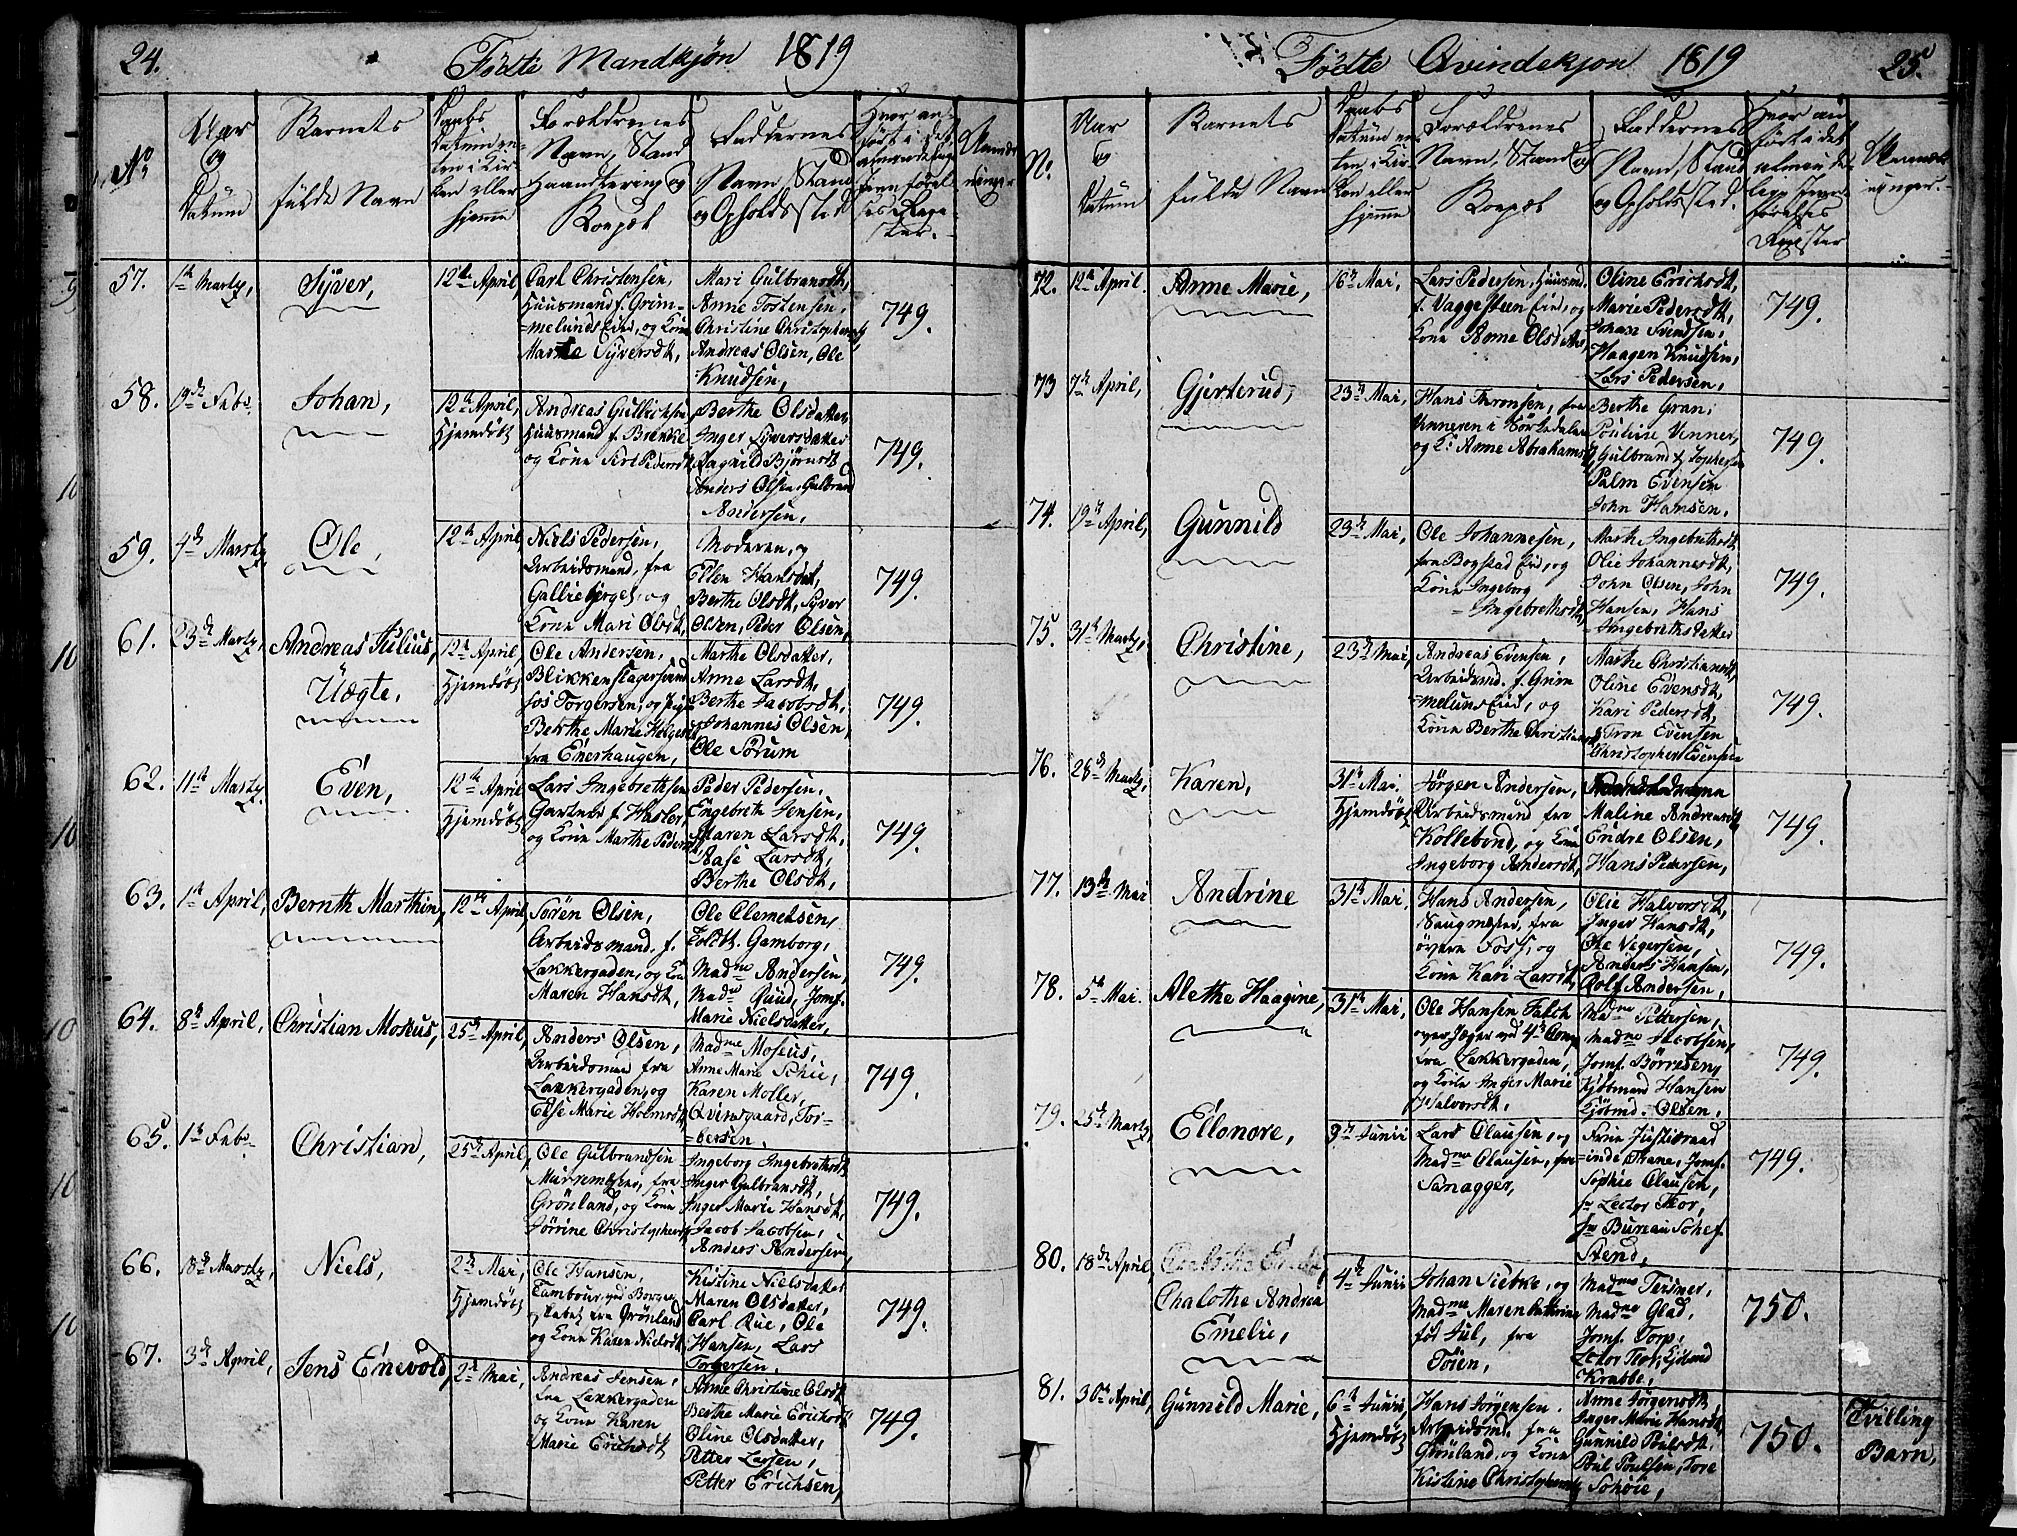 24.
Födte Mandkjön 1819
No
Aar og Datum
Barnets fulde Navn
Daabs Datum enten i Kirken eller hjemme
Forældrenes Navn, Stand Haandtering og Bopæl
Faddernes Navn Stand og Opholdssted
Hvor anført i det almindelige Jevnførelses Register.
57.
1te Marty,
Syver,
12te April,
Carl Christensen,
Huusmand f. Grim-
=melunds Eie, og Kone
Marte Syversdt,
Mari Gulbransdt,
Anne Tostensen,
Christine Christophersdt,
Andreas Olsen, Ole
Knudsen,
749.
58.
19de Febr.
Johan,
12te April,
Hjemdöbt
Andreas Gulbrichsen
Huusmand f. Brenke
og Kone Siri Pedersdt
Berthe Olsdatter,
Inger Syversdatter
Ragnild Björnsdt
Anders Olsen, Gulbrand
Andersen,
749.
59.
4de Marty,
Ole,
12te April
Niels Pedersen,
Arbeidsmand, fra
Galliebjerget, og
Kone Mari Olsdt,
Moderen, og
Ellen Hansdat,
Berthe Olsdt, Syver
Olsen, Peder Olsen,
749.
61.
23de Marty,
Andreas Julius,
Uægte,
12te April,
Hjemdöbt
Ole Andersen,
Blikkenslagersvend
hos Torgersen, og Pige
Berthe Marie Holgersdt
fra Enerhaugen,
Marthe Olsdatter,
Anne Larsdt,
Berthe Jacobsdt,
Johannes Olsen,
Ole Sörum
749.
62.
11te Marty.
Even,
12te April
Hjemdöbt
Lars Ingebrethsen
Gartner f. Hasler,
og Kone Marthe Pedersdt,
Peder Pedersen,
Engebreth Jensen,
Maren Larsdt,
Aase Larsdt,
Berthe Olsdt,
749.
63.
1te April,
Bernth Marthin,
12te April,
Sören Olsen,
Arbeidsmand, f.
Lakkergaden, og Kone
Maren Hansdt,
Ole Clemetsen,
Toldb. Gamborg,
Madme Andersen,
Madme Ruud, Jomf.
Marie Nielsdatter,
749.
64.
8te April,
Christian Moseus,
25de April,
Anders Olsen,
Arbeidsmand fra
Lakkergaden, og
Else Marie Holmsdt,
Madme Moseus,
Anne Marie Schie,
Karen Moller,
Qvinsgaard, Tor-
=bersen.
749.
65.
1te Febr.
Christian,
25de April,
Ole Gulbrandsen
Murremester, fra
Grönland, og Kone
Jörine Christophersdt,
Ingeborg Ingebrethsdt
Inger Gulbransdt,
Inger Marie Hansdt,
Jacob Jacobsen,
Anders Andersen,
749.
66.
18de Marty,
Niels,
2den Mai,
Hjemdöbt
Ole Hansen,
Tambour ved Borger
fra Grönland
og Kone Karen Nielsdt
Kistine Nielsdatter
Maren Olsdatter,
Carl Rue, Ole
Hansen, Lars
Torgersen.
749.
67.
3de April,
Jens Enevold,
2den Mai,
Andreas Jensen,
fra Lakkergaden
og Kone Karen
Marie Erichsdt
Anne Christine Olsdt,
Berthe Marie Erichsdt
Oline Olsdatter,
Petter Larsen,
Petter Erichsen,
749.
Födte Qvindekjön 1819
25.
N.
Aar og Datum
Barnets fulde Navn
Daabs Datum enten i Kirken eller hjemme
Forældrenes Navn, Stand og Bopæl
Faddernes Navn, Stand og Opholdssted.
Hvor anført i det almindelige Jevnførelses Register
Anmærkninger.
72.
12te April.
Anne Marie,
16de Mai,
Lars Pedersen, Huusmd.
f. Vaggesteen Eie, og
Kone Anne Olsdatter,
Oline Erichsdt,
Marie Pedersdt,
Johan Svendsen,
Haagen Knudsen,
Lars Pedersen,
749.
73
7de April,
Gjerterud,
23de Mai,
Hans Thronsen, fra
Venneren i Sörkedalen
og Ke Anne Abrahamsdt,
Berthe Gran,
Pouline Venner,
Gulbrand Tophersen
Palm Evensen
John Hansen,
749.
74.
19de April,
Gunnild
23de Mai,
Ole Johannesen,
fra Bogstad Eie, og
Kone Ingeborg
Ingebrethsdt,
Marth Ingebrethsdt
Olie Johannesdt,
John Olsen, John
Hansen, Hans
Ingebrethsdatter
749.
75.
31te Marty,
Christine,
23de Mai,
Andreas Evensen,
Arbeidsmd. f. Grim
=melunds Eie, og
Kone Berthe Christiansdt,
Marthe Christiansdt,
Oline Evensdt,
Kari Pedersdt,
Tron Evensen
Christopher Evensen
749.
76.
28de Marty,
Karen,
31te Mai,
Hjemdöbt
Jörgen Andersen,
Arbeidsmand fra
Kollebond, og Kone
Ingeborg Andersdt,
Maline Andreasdt,
Endre Olsen,
Hans Pedersen,
749.
77.
13de Mai
Andrine
31te Mai,
Hans Andersen,
Saugmester, fra
övere Foss, og
Kone Kari Larsdt,
Olie Halvorsdt,
Inger Hansdt,
Ole Vegersen,
Anders Hansen,
Rolf Andersen,
749.
78.
5te Mai.
Alethe Haagine,
31te Mai,
Ole Hansen Falch
overjæger ved 4de Comp
fra Lakkergaden,
og Kone Inger Marie
Halvorsdt,
Madme Pettersen,
Madme Jacobsen,
Jomf. Börresen,
Kjöbmand Hansen
Kjöbmd. Olsen,
749.
79.
25de Marty,
Ellonore,
9de Junii
Lars Clausen, og
Madme Clausen, fra
Sanagger,
Frue Justitsraad
=inde Thane, Jomf.
Sophie Clausen,
Hr Lector Thor,
Hr Bureau Schef
Stend,
749.
80.
18de April,
Chalothe Andrea
Emelie,
4de Junii
Johan Siebke, og
Madme Maren Kathrine
fód Jul, fra
Töien,
Madme Teisner,
Madme Glad,
Jomf. Torp,
Lector Thor,
Krabbe,
750.
81.
30te April,
Gunnild Marie,
6te Junii
Hjemdöbt
Hans Jörgensen.
Arbeidsmd. fra
Grönland, og Kone
Kistine Christophersdt,
Anne Jörgensdt,
Inger Marie Hansdt,
Gunnild Poulsdt,
Poul Poulsen, Tore
Schöie,
750.
Tvilling
Barn,